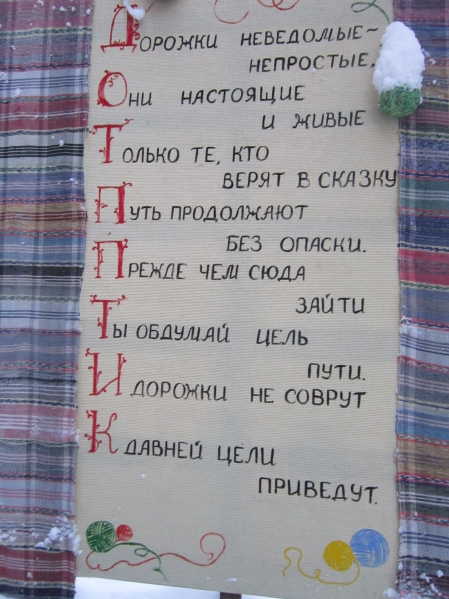 Дорожки неведомые-
непростые.
Они настоящие
и живые
Только те, кто
верят в сказку
Путь продолжают
без опаски.
Прежде чем сюда
зайти
Ты обдумай цель
пути.
И дорожки не соврут
К давней цели
приведут.